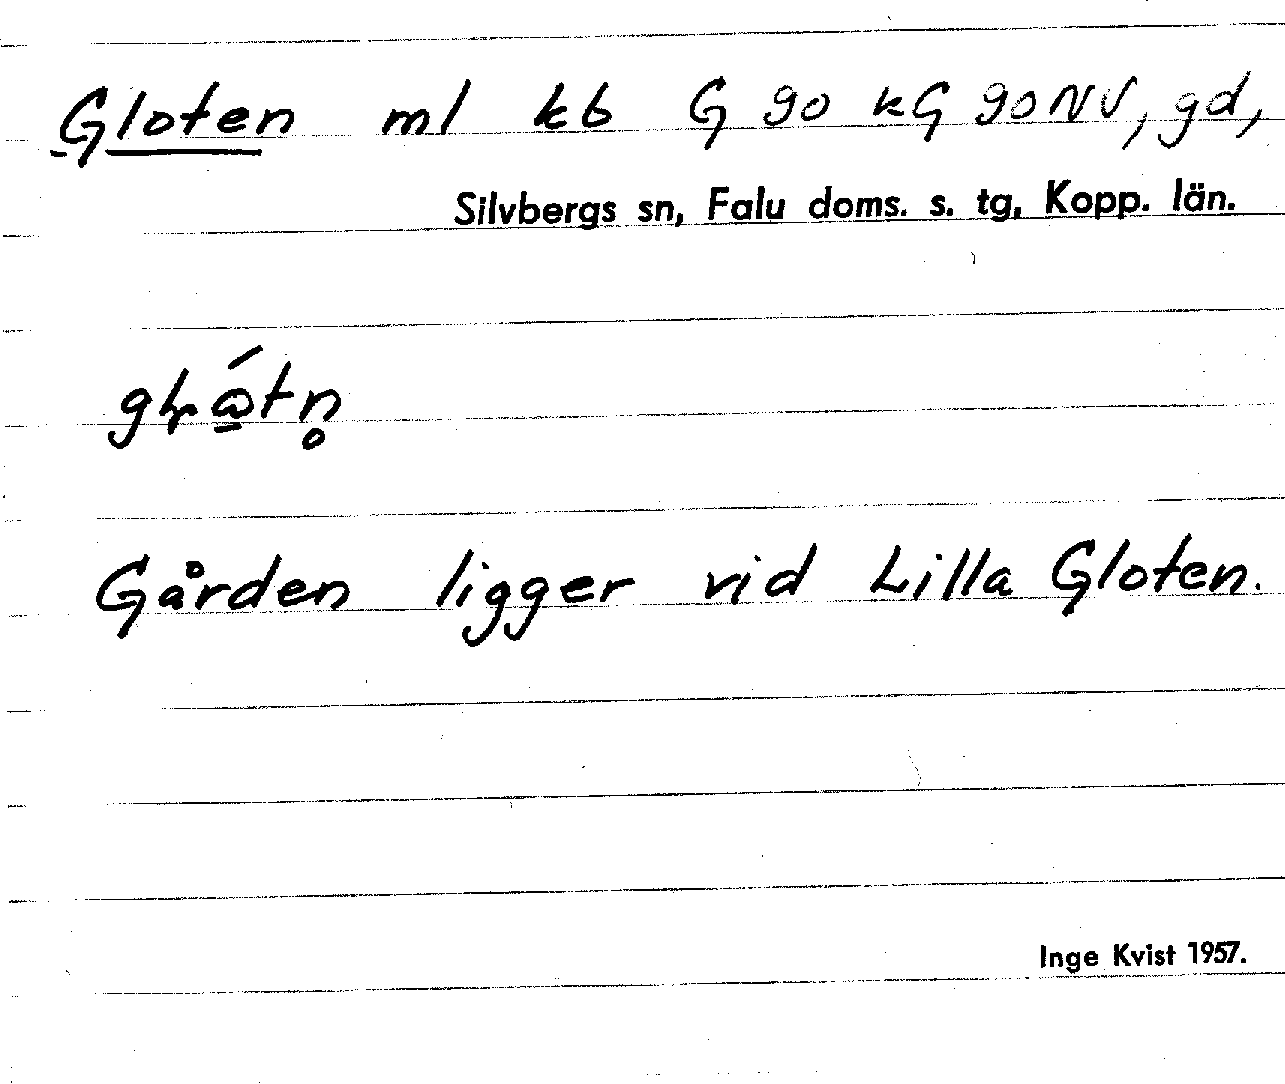 Gloten ml kb G 90 kG 90NV, gd,
Silvbergs sn, Falu doms. s. tg, Kopp. län.
Gården ligger vid Lilla Gloten.
Inge Kvist 1957.